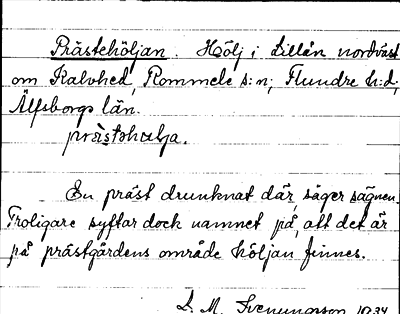 Prästehöljan. Hölj i Lillån nordväst
om Kalvhed, Rommele s:n, Flundre h:d,
Älfsborgs län.
En präst drunknat där, säger sägnen.
Troligare syftar dock namnet på, att det är
på prästgårdens område höljan finnes.
L. M. Svenungsson 1934